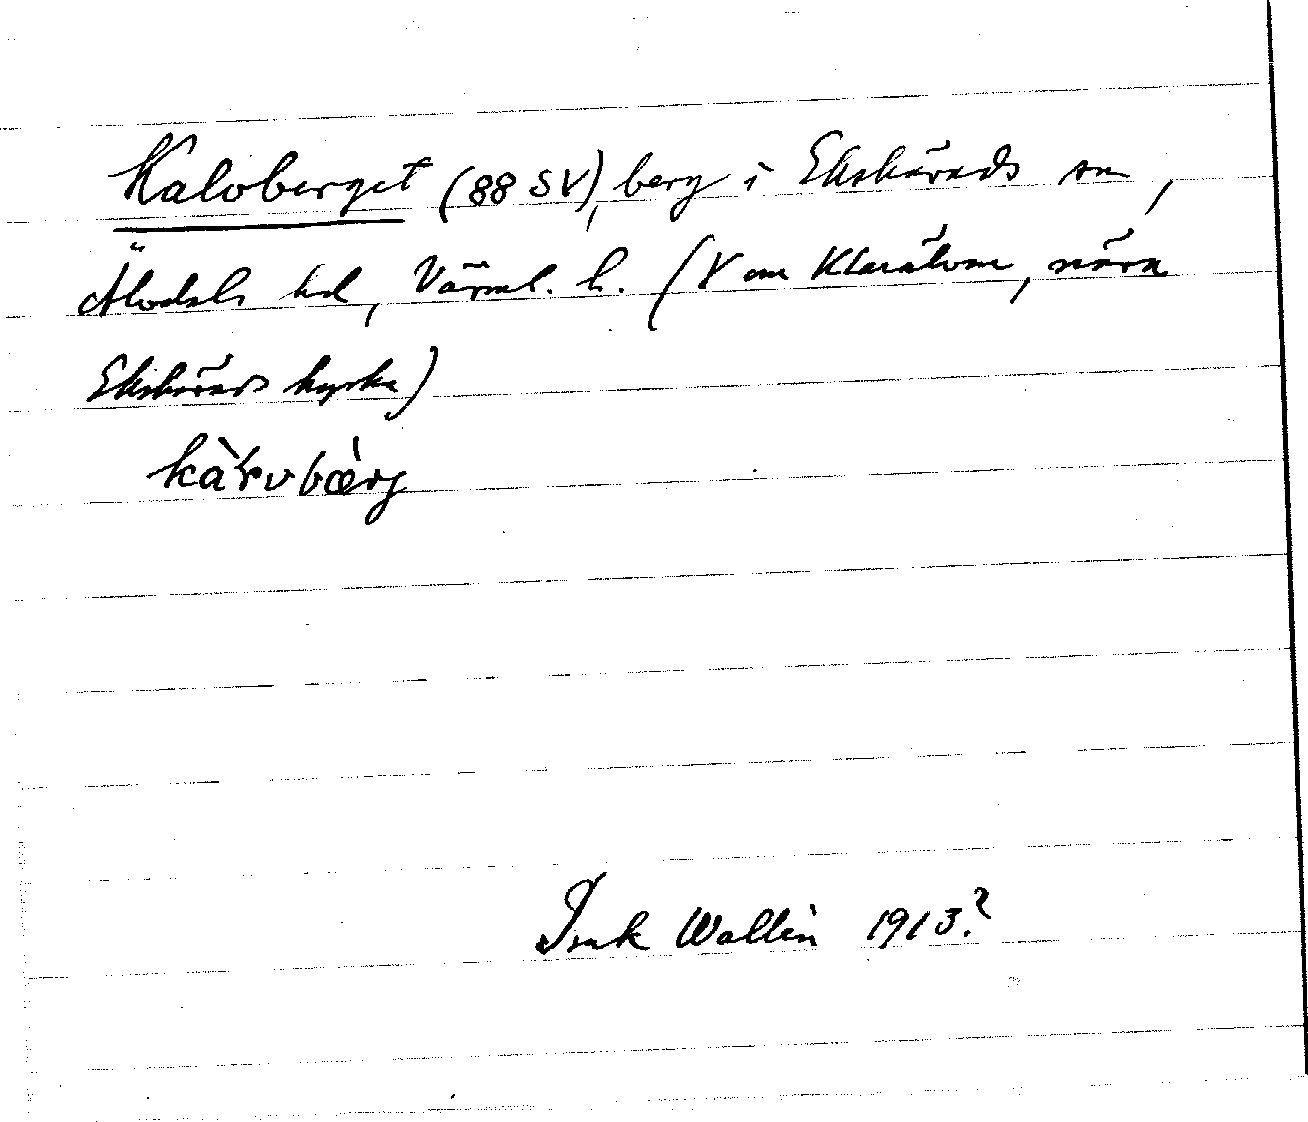 Kalvberget (88 SV), berg i Ekshärads sn,
Älvdals hd, Värml. l. (V om Klarälven, nära
Ekshärads kyrka)
kàrvbærg
Isak Wallin 1913?